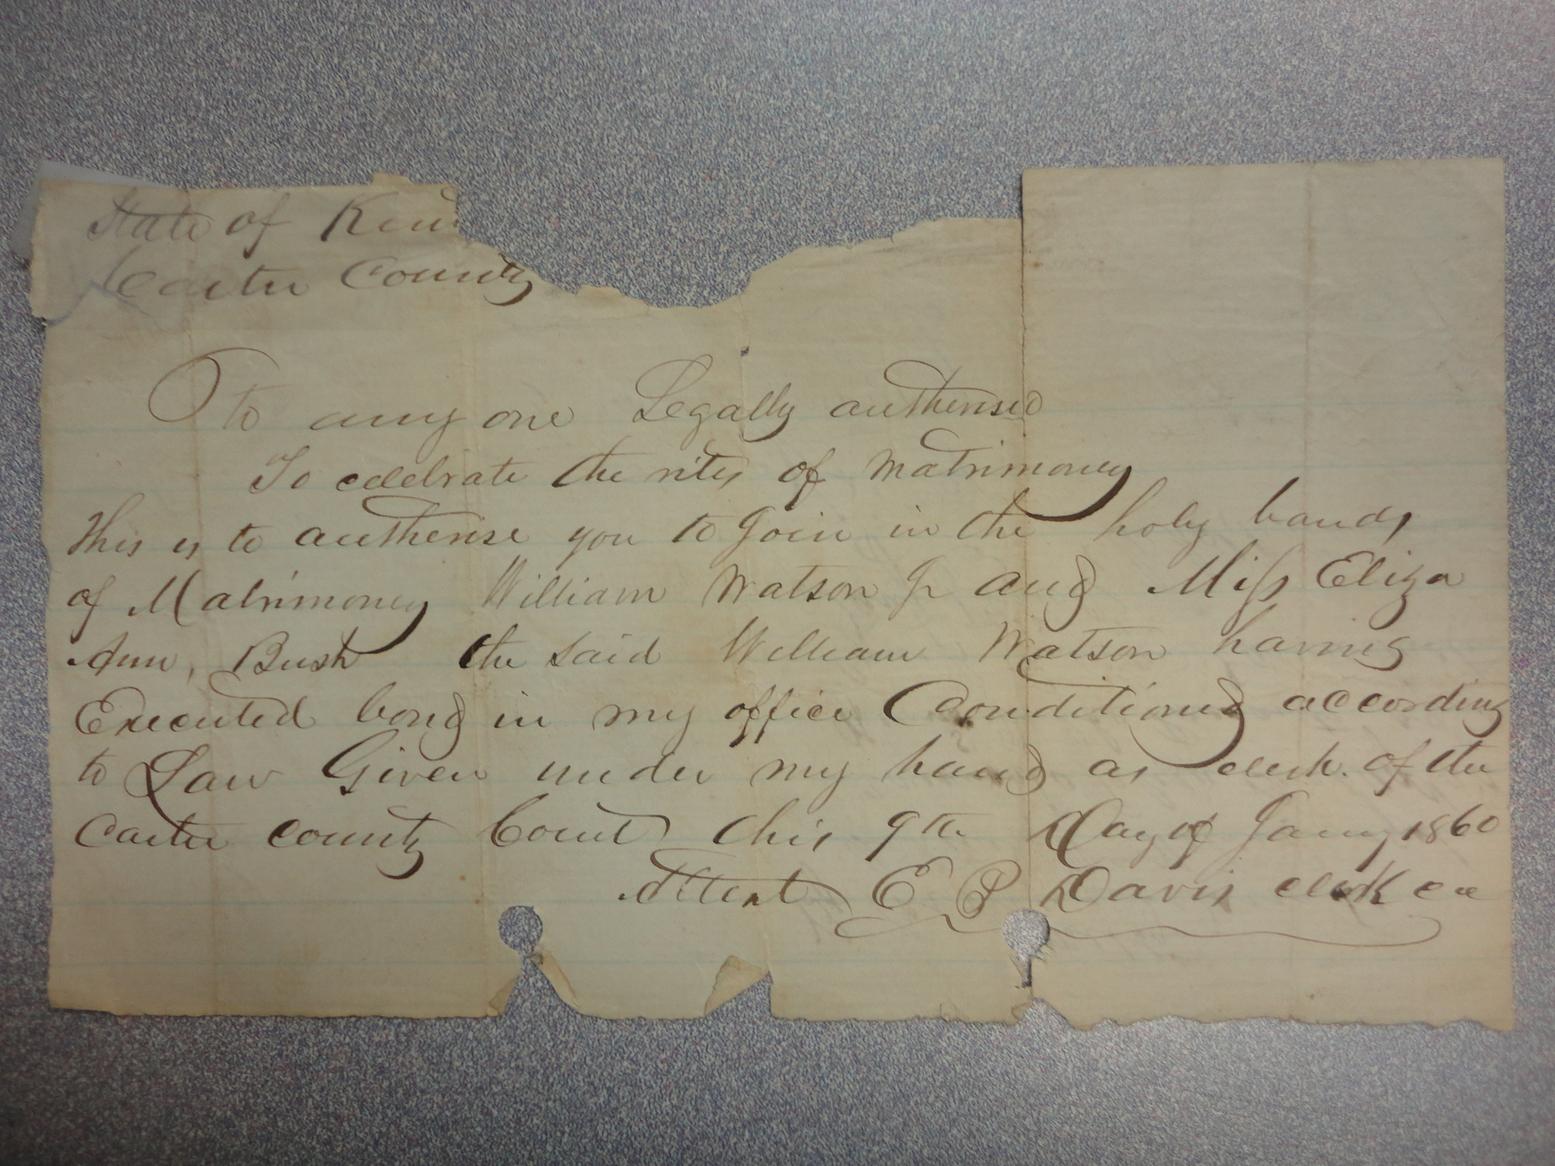 State of Ken
Carter County
To any one Legally authorised
To celebrate the rites of Matrimoney
This is to authorise you to Join in the holy bands
of Matrimoney William Watson Jr and Miss Eliza
Ann, Bush the said William Watson having
Executed bond in my office Conditioned according
to Law Given under my hand as clerk. of the
Carter County Court this 9th Day of Jany 1860
Attest E P Davis clerk